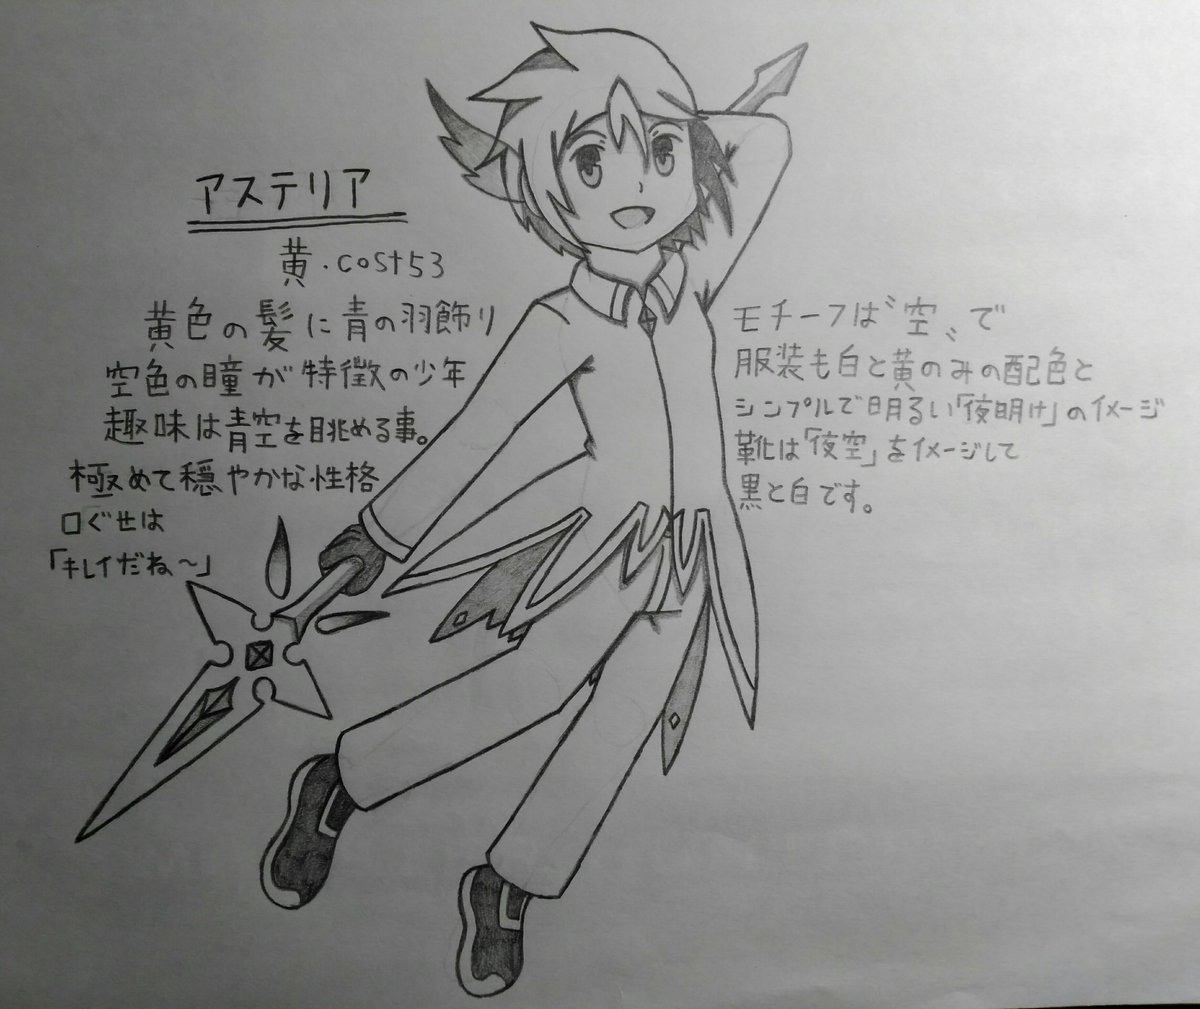 アステリア
黄・cost53
黄色の髪に青の羽飾り
空色の瞳が特徴の少年
趣味は青空を眺める事。
極めて穏やかな性格
口ぐせは
「キレイだね〜」
モチーフは〝空〟で
服装も白と黄のみの配色と
シンプルで明るい「夜明け」のイメージ
靴は「夜空」をイメージして
黒と白です。